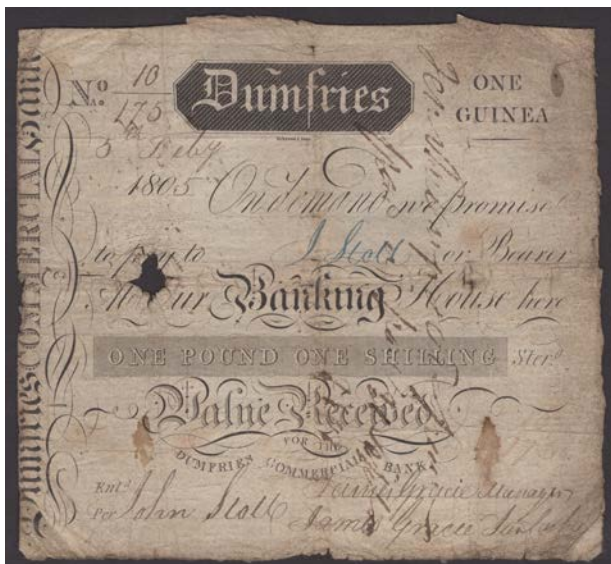 Dumfries COMMERCIAL Bank
No. 10
175
Dumfries
ONE
GUINEA
5 Feby
1805 On demand we promise
to pay to J Stott or Bearer
At Our Banking House here
ONE POUND ONE SHILLING Sterg
Value Received
FOR THE
DUMFRIES COMMERCIAL BANK
Entd
Per John Stott
James Gracie Manager
James Gracie